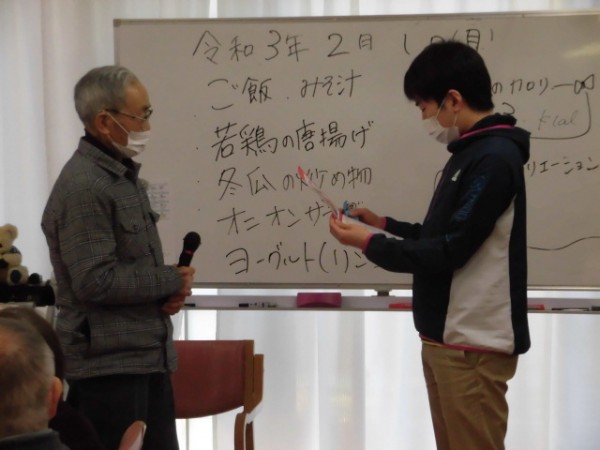 令和3年2月1日(月)
ご飯.みそ汁
若鶏の唐揚げ
冬瓜の炒め物
オニオンサラダ
ヨーグルト(リン
のカロリー
kcal
リエーション